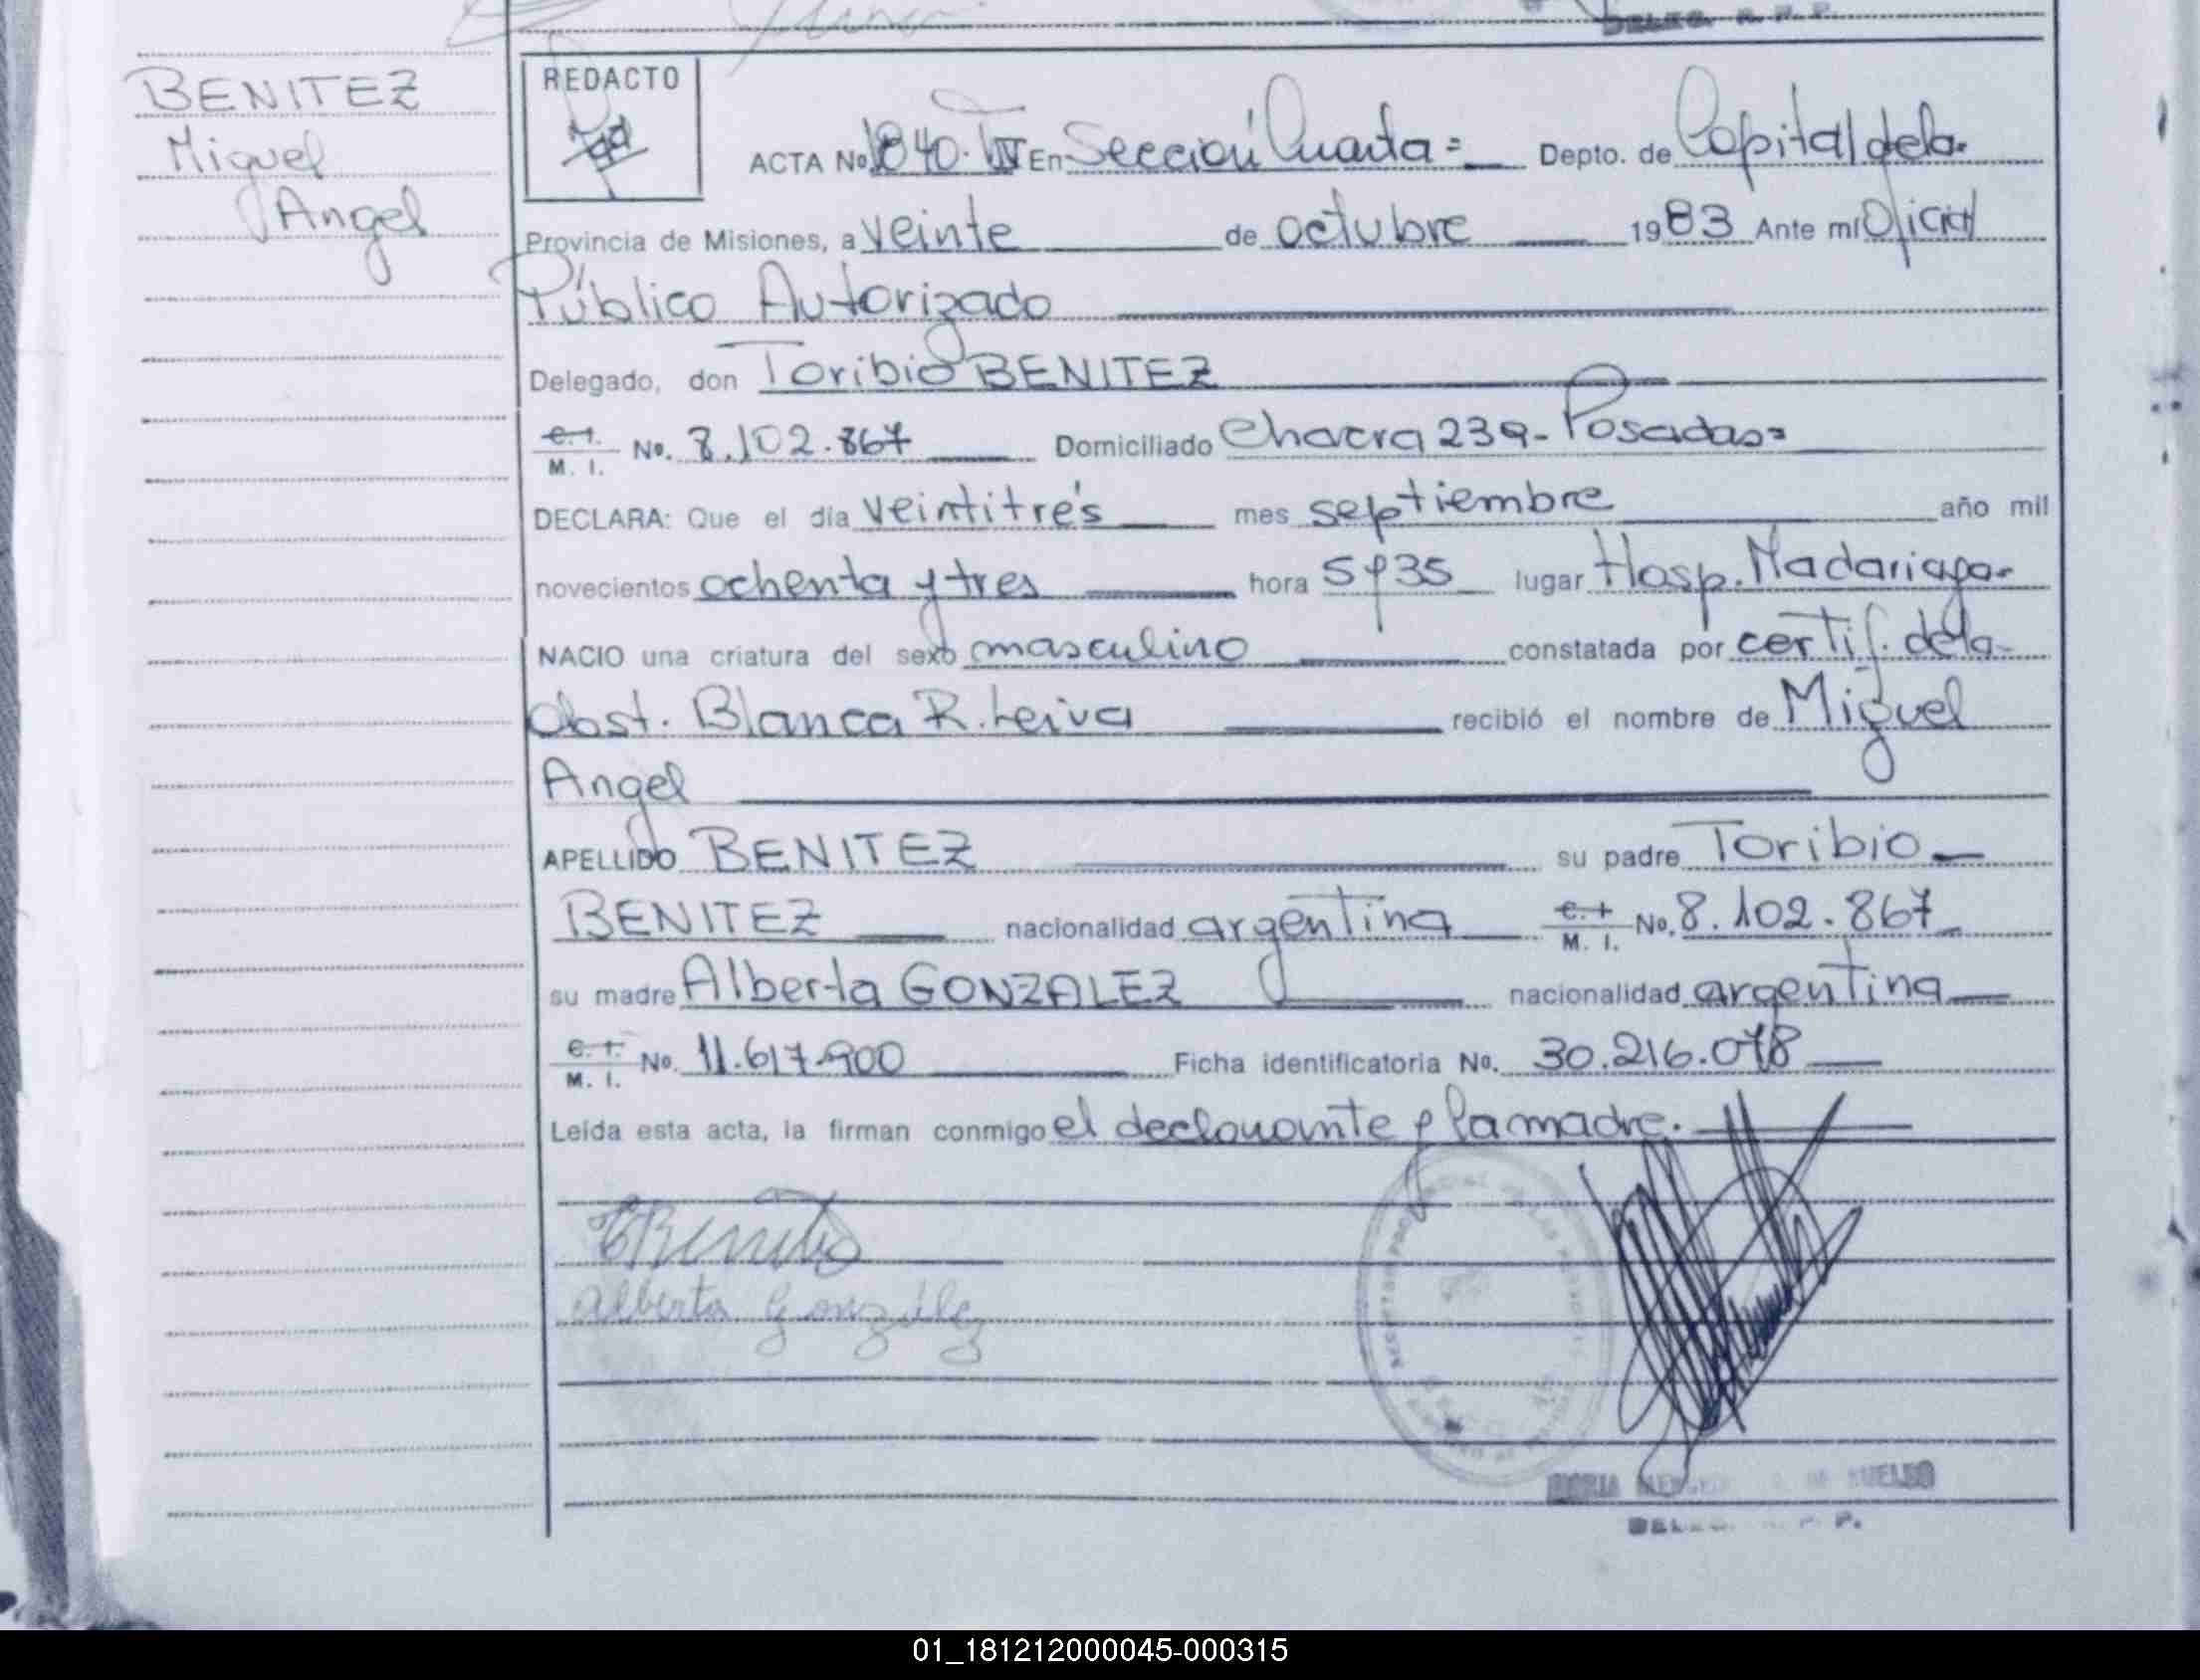 DELEG. R. P. P.
BENITEZ
Miguel
Angel
REDACTO
ACTA No 1840. T IV En Sección Cuarta = Depto. de Capital de la
Provincia de Misiones, a veinte de octubre 1983 Ante mí Oficial
Público Autorizado
Delegado, don Toribio BENITEZ
C. I.
M. I. No. 8.102.867 Domiciliado Chacra 239 - Posadas =
DECLARA: Que el día veintitrés mes septiembre año mil
novecientos ochenta y tres hora 5y35 lugar Hosp. Madariaga
NACIO una criatura del sexo masculino constatada por certif. de la
Obst. Blanca R. Leiva recibió el nombre de Miguel
Angel
APELLIDO BENITEZ su padre Toribio
BENITEZ nacionalidad argentina C. I.
M. I. No. 8.102.867
su madre Alberta GONZALEZ nacionalidad argentina
C. I.
M. I. No. 11.617.900 Ficha identificatoria No. 30.216.078
Leída esta acta, la firman conmigo el declarante y la madre.
TBenitez
Alberta González
DE SUELDO
DELEG. R. P. P.
01_181212000045-000315